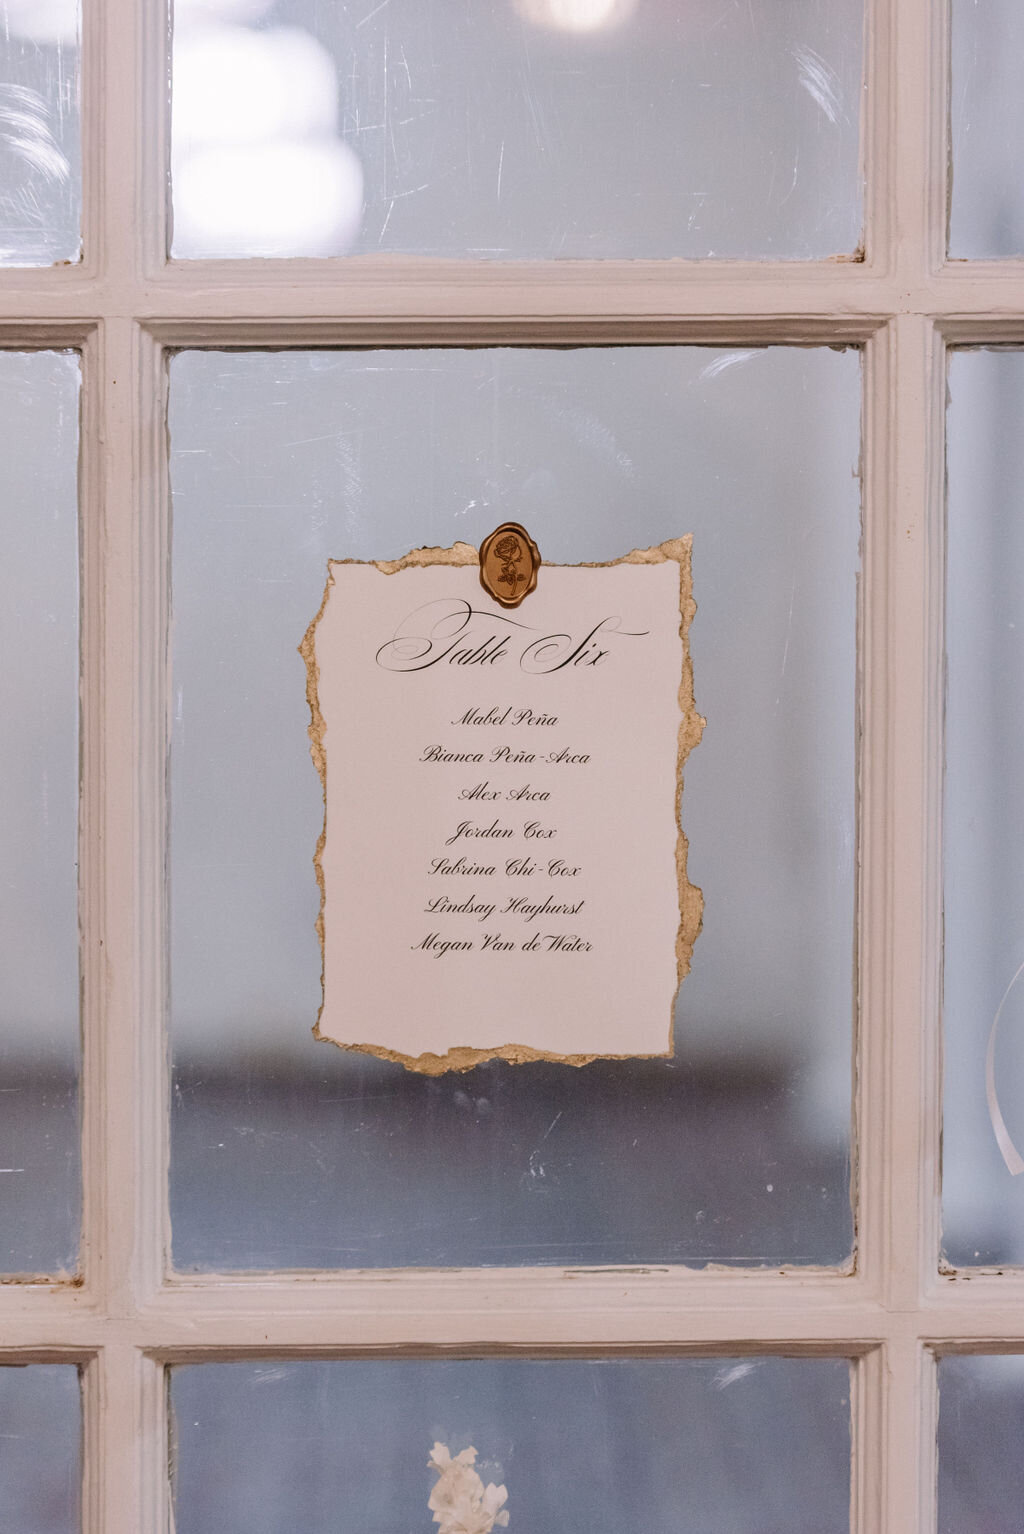 Table Six
Mabel Peña
Bianca Peña-Arca
Alex Arca
Jordan Cox
Sabrina Chi-Cox
Lindsay Hayhurst
Megan Van de Water